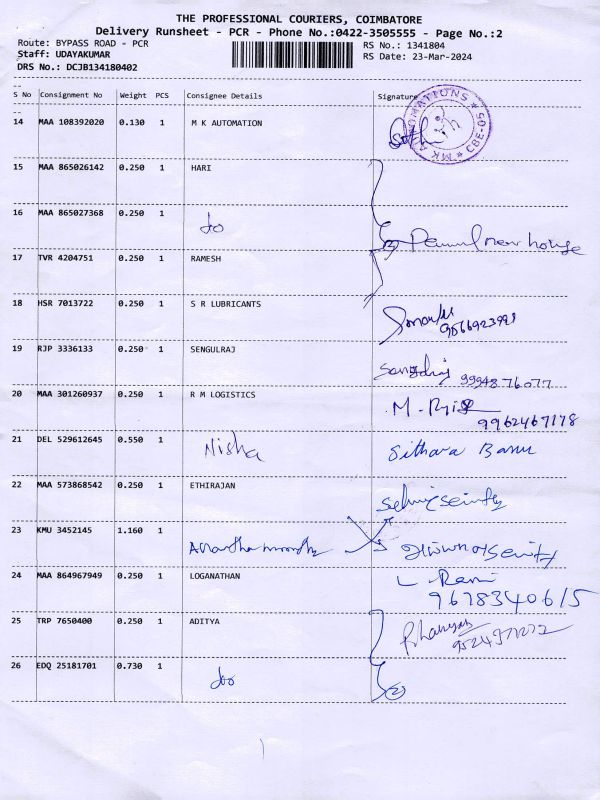 THE PROFESSIONAL COURIERS, COIMBATORE
Delivery Runsheet - PCR - Phone No.:0422-3505555 - Page No.:2
Route: BYPASS ROAD - PCR
RS No.: 1341804
Staff: UDAYAKUMAR
RS Date: 23-Mar-2024
DRS No.: DCJB134180402
S No Consignment No Weight PCS Consignee Details Signature
14 MAA 108392020 0.130 1 M K AUTOMATION
MK AUTOMATIONS CBE-05
15 MAA 865026142 0.250 1 HARI
16 MAA 865027368 0.250 1 do
new house
17 TVR 4204751 0.250 1 RAMESH
18 HSR 7013722 0.250 1 S R LUBRICANTS
19 RJP 3336133 0.250 1 SENGULRAJ
99948 76077
20 MAA 301260937 0.250 1 R M LOGISTICS
9962467178
21 DEL 529612645 0.550 1 Nisha Sithara Banu
22 MAA 573868542 0.250 1 ETHIRAJAN
23 KMU 3452145 1.160 1
24 MAA 864967949 0.250 1 LOGANATHAN L. Rani
9678340615
25 TRP 7650400 0.250 1 ADITYA
26 EDQ 25181701 0.730 1 do (2)